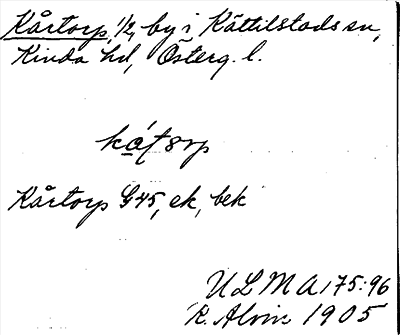 Kårtorp, 1/2, by i Kättilstads sn,
Kinda hd, Österg. l.
Kårtorp G45, ek, bek
ULMA 175:96
R. Alvin 1905